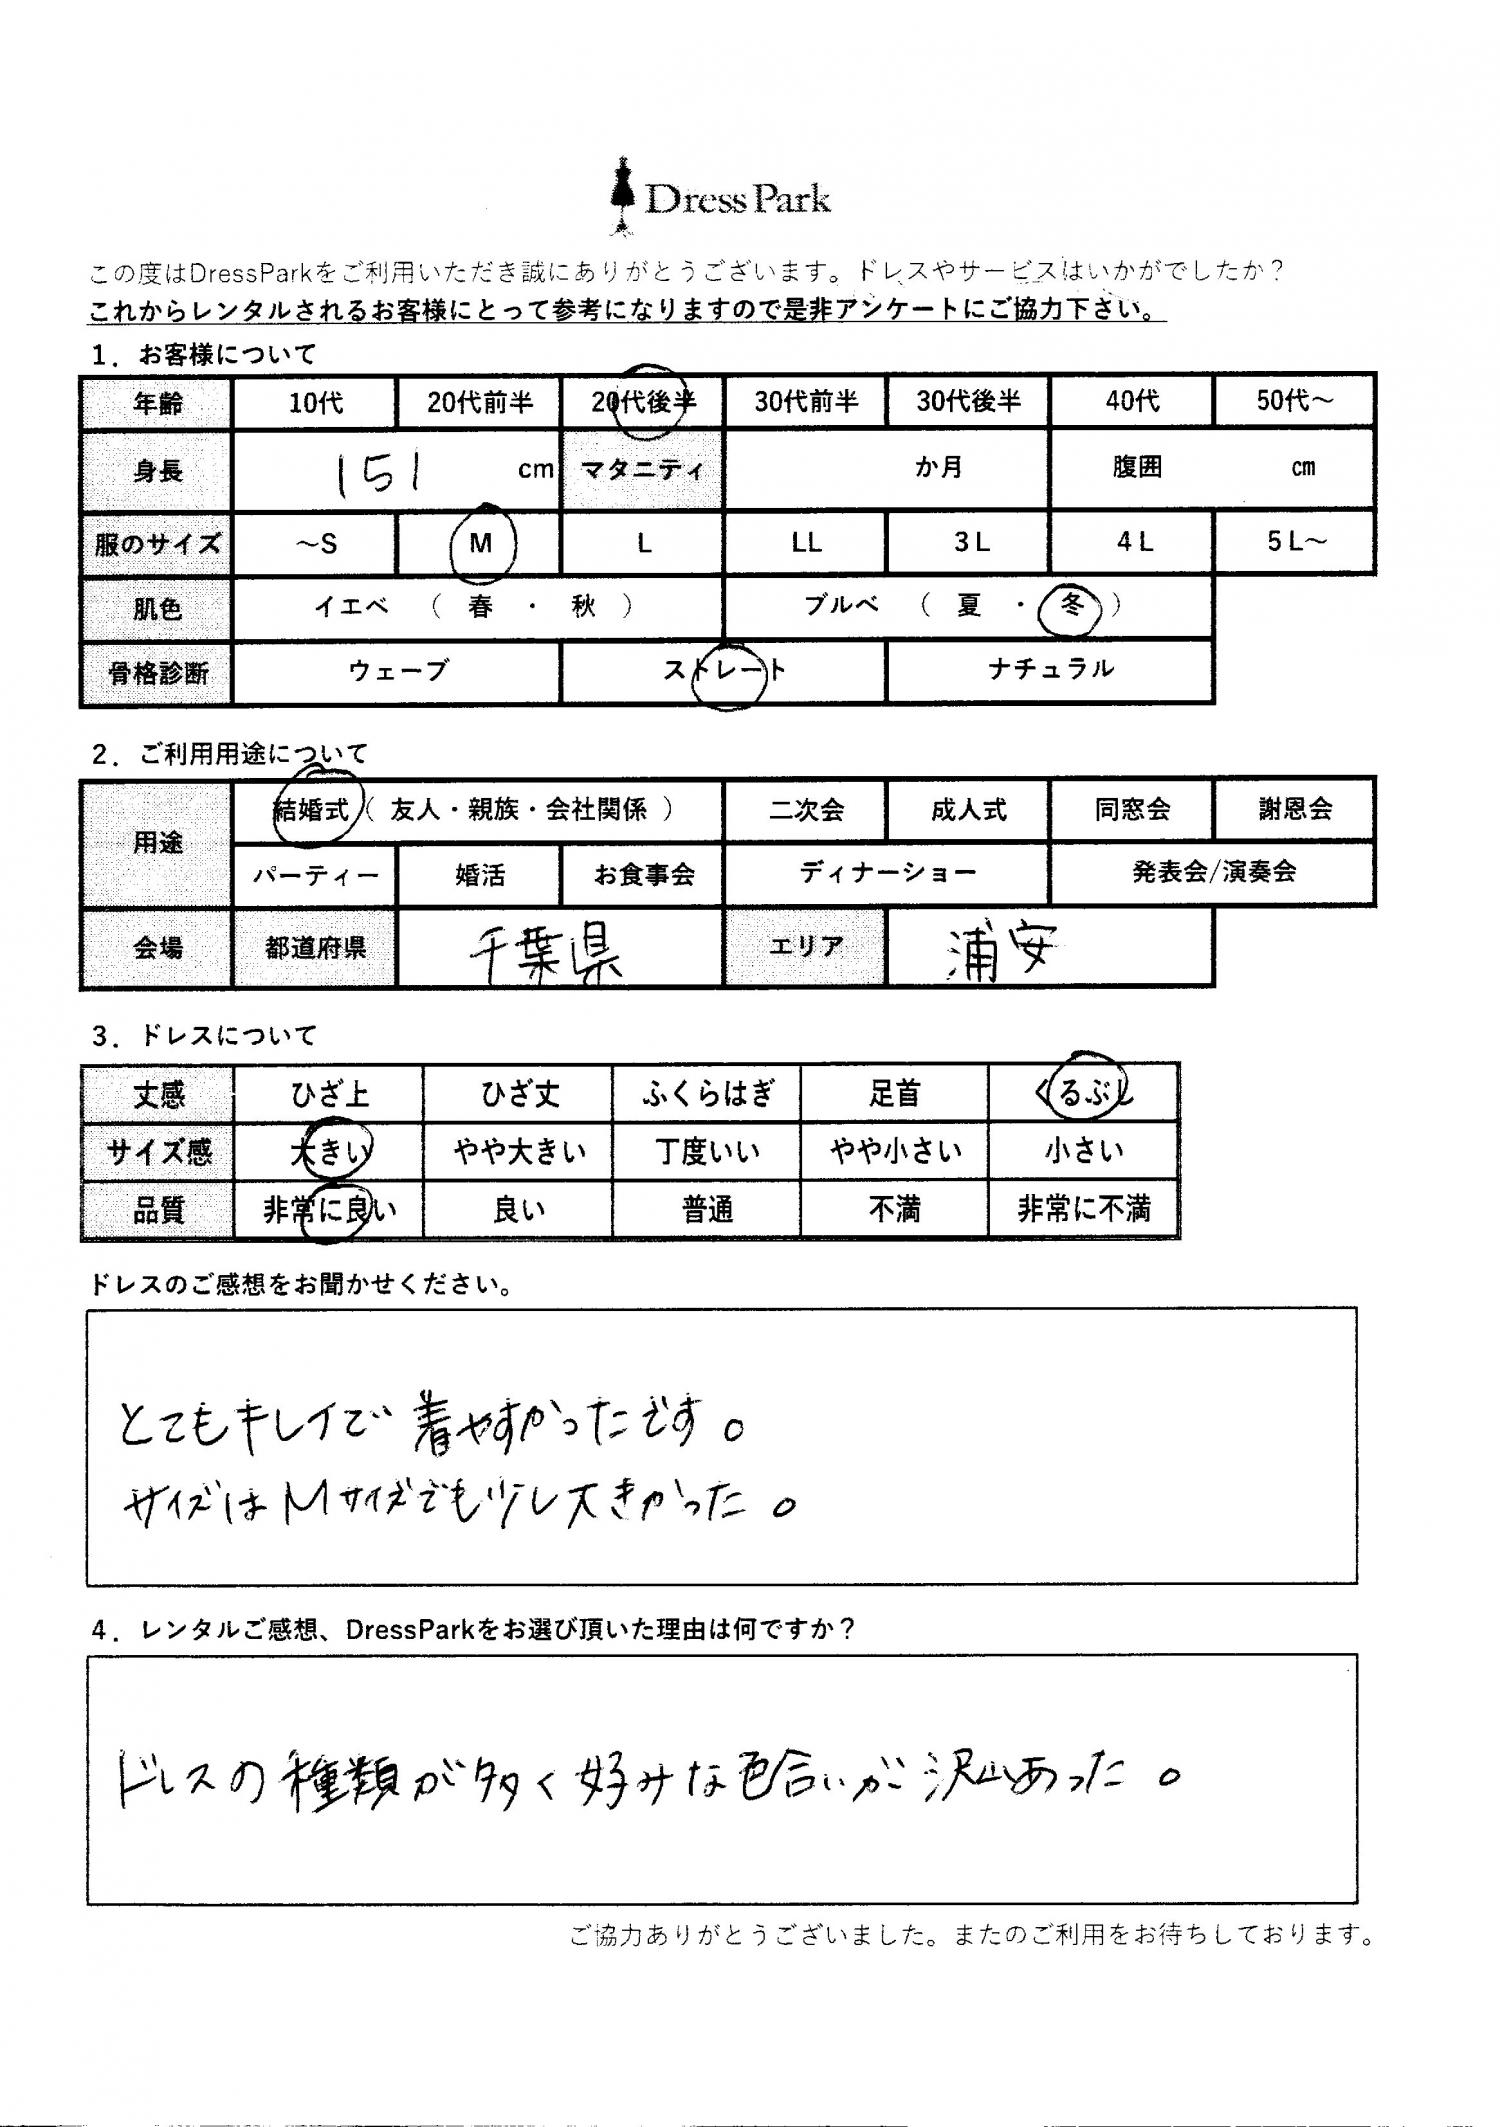 Dress Park
この度はDressParkをご利用いただき誠にありがとうございます。ドレスやサービスはいかがでしたか？
これからレンタルされるお客様にとって参考になりますので是非アンケートにご協力下さい。
1．お客様について
年齢 10代 20代前半 20代後半 30代前半 30代後半 40代 50代～
身長 151 cm マタニティ か月 腹囲 ㎝
服のサイズ ～S M L LL 3L 4L 5L～
肌色 イエベ （ 春 ・ 秋 ） ブルべ （ 夏 ・ 冬 ）
骨格診断 ウェーブ ストレート ナチュラル
2．ご利用用途について
用途 結婚式（ 友人・親族・会社関係 ） 二次会 成人式 同窓会 謝恩会
パーティー 婚活 お食事会 ディナーショー 発表会/演奏会
会場 都道府県 千葉県 エリア 浦安
3．ドレスについて
丈感 ひざ上 ひざ丈 ふくらはぎ 足首 くるぶし
サイズ感 大きい やや大きい 丁度いい やや小さい 小さい
品質 非常に良い 良い 普通 不満 非常に不満
ドレスのご感想をお聞かせください。
とてもキレイで着やすかったです。
サイズはMサイズでも少し大きかった。
4．レンタルご感想、DressParkをお選び頂いた理由は何ですか？
ドレスの種類が多く好みな色合いが沢山あった。
ご協力ありがとうございました。またのご利用をお待ちしております。